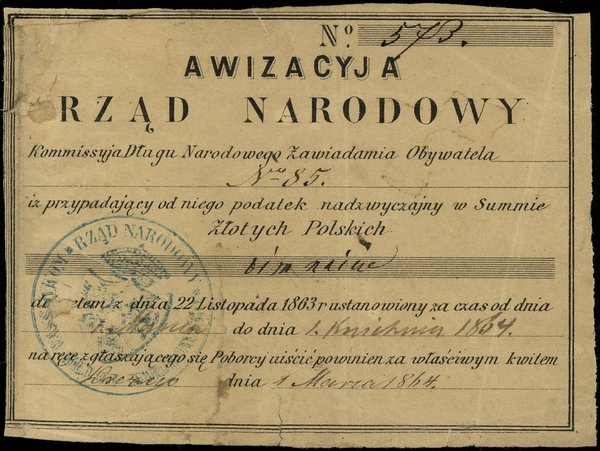 No. 573.
AWIZACYJA
RZĄD NARODOWY
Kommissyja Długu Narodowego Zawiadamia Obywatela
Nro 85.
iż przypadający od niego podatek nadzwyczajny w Summie
Złotych Polskich
dekretem z dnia 22 Listopada 1863 r ustanowiony za czas od dnia
1. do dnia 1. Kwietnia 1864.
na ręce zgłaszającego się Poborcy uiścić powinien za właściwym kwitem
dnia 1 Marca 1864.
RZĄD NARODOWY